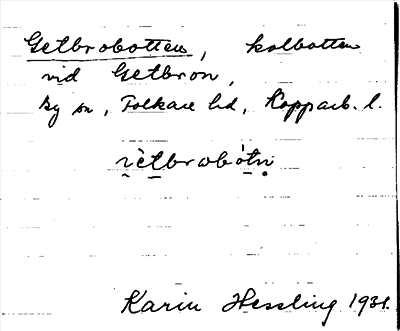 Getbrobotten, kolbotten
vid Getbron,
By sn, Folkare hd, Kopparb. l.
Karin Hessling 1931.